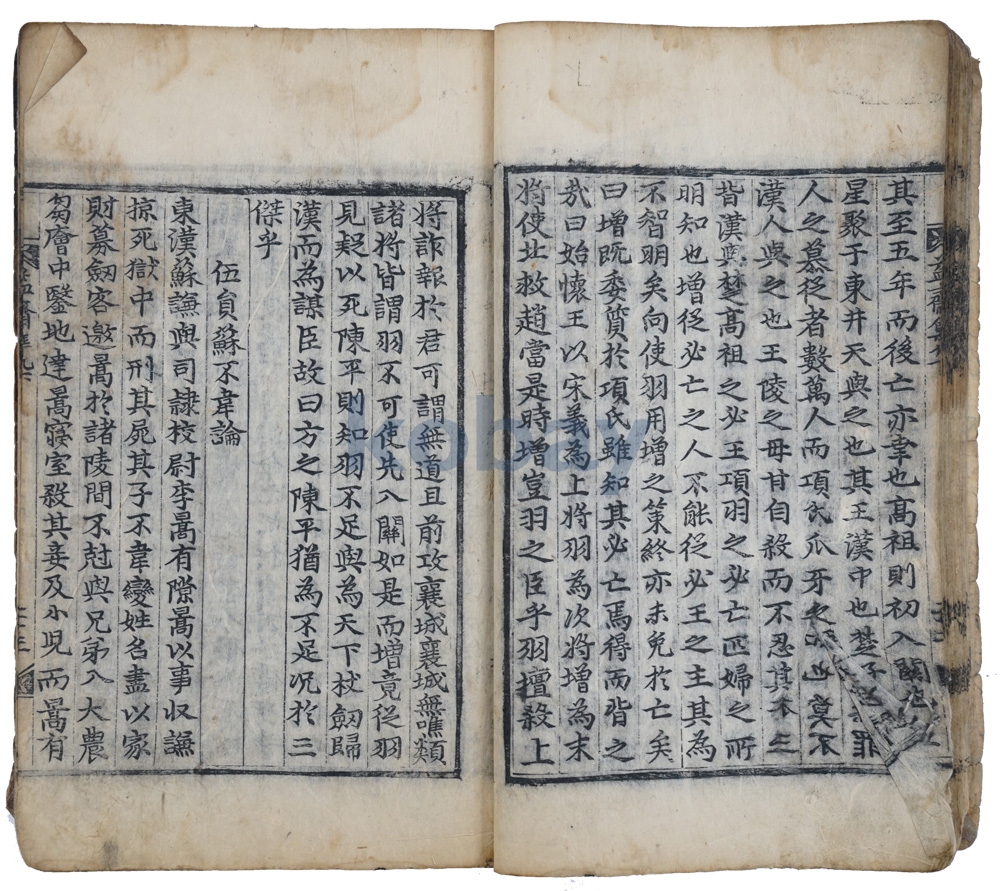 其至五年而後亡亦幸也高祖則初入關
星聚于東井天與之也其王漢中也楚子
人之慕從者數萬人而項氏爪牙之 也莫不
漢人與之也王陵之母甘自殺而不忍其不
背漢與楚高祖之必王項羽之必亡匹婦之所
明知也增從必亡之人不能從必王之主其為
不智明矣向使羽用增之策終亦未免於亡矣
曰增既委質於項氏雖知其必亡焉得而背之
哉曰始懷王以宋義為上將羽為次將增為末
將使北救趙當是時增豈羽之臣乎羽擅殺上
將詐報於君可謂無道且前攻襄城襄城無噍類
諸將皆謂羽不可使先入關如是而增竟從羽
見疑以死陳平則知羽不足與為天下杖劒歸
漢而為謀臣故曰方之陳平猶為不足况於三
傑乎
伍員蘇不韋論
東漢蘇謙與司隷校尉李暠有隙暠以事收謙
掠死獄中而刑其屍其子不韋變姓名盡以家
財募劒客邀暠於諸陵間不尅與兄弟入大農
芻廥中鑿地達暠寢室殺其妾及小兒而暠有
kobay